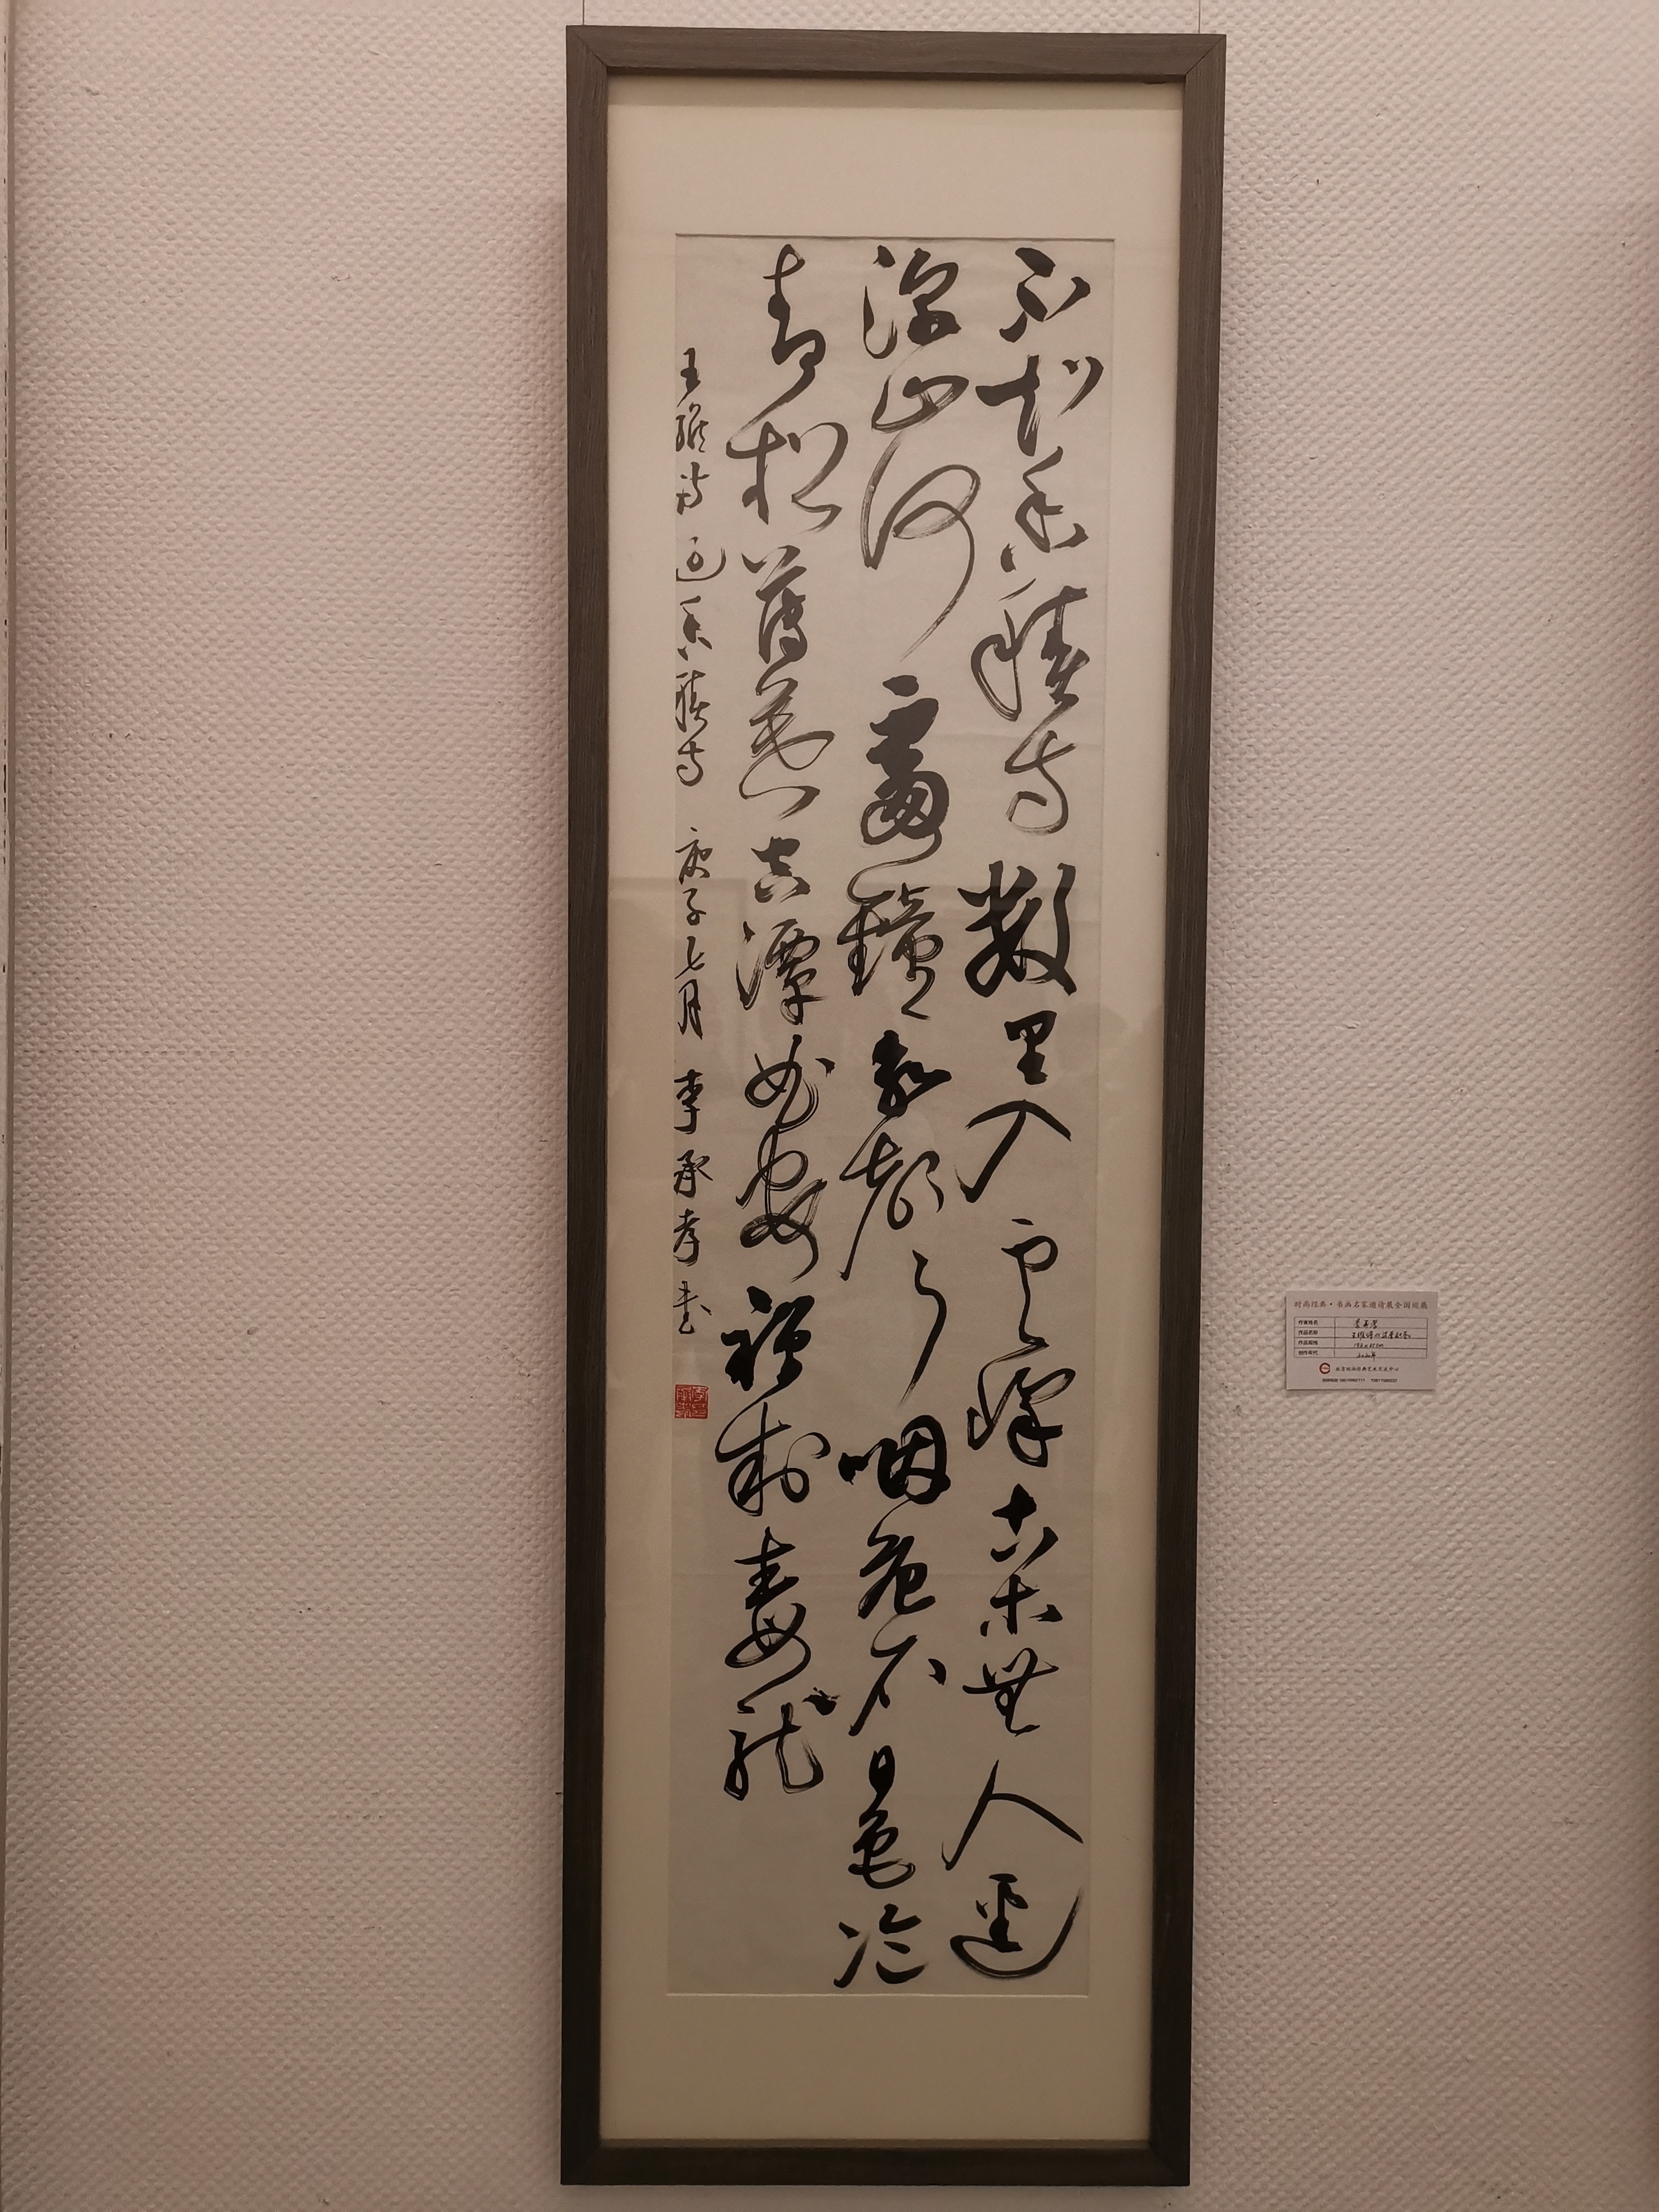 不知香積寺數里入雲峰古木無人逕
深山何處鐘泉聲咽危石日色冷
青松薄暮空潭曲安禪制毒龍
王維詩過香積寺 庚子七月 李承孝書
时尚经典·书画名家邀请展全国巡展
作者姓名 李承孝
作品名称
作品规格
创作年代 2020年